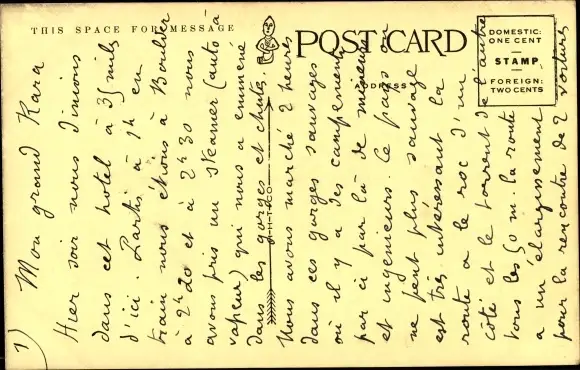 THIS SPACE FOR MESSAGE
POST CARD
ADDRESS
DOMESTIC:
ONE CENT
STAMP
FOREIGN:
TWO CENTS
H-H-T-CO
1)
Mon grand Kara
Hier soir nous dinions
dans cet hotel à 35 miles
d'ici. Partis à 1h en
train nous étions à Boulder
à 2h20 et à 2h30 nous
avons pris un Steamer (auto à
vapeur) qui nous a emmené
dans les gorges et chutes.
Nous avons marché 2 heures
dans ces gorges sauvages
où il y a des campements
par ci par là de mineurs
et ingenieurs. Ce pays on
ne peut plus sauvage
est très intéressant la
route a le roc d'un
côté et le torrent de l'autre
Tous les 50 m. la route
a un élargissement
pour la rencontre de 2 voitures